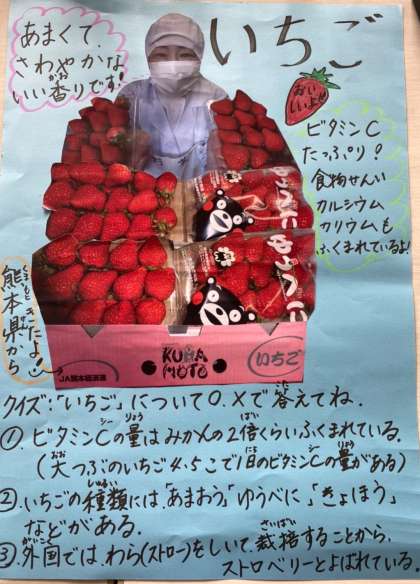 いちご
あまくて、
さわやかな
いい香りです!
おい
しいよ
ビタミンC
たっぷり!
食物せんい
カルシウム
カリウムも
ふくまれているよ!
ゆうべに
ゆうべに
熊本県から
きたよ!
KUMAMOTO
いちご
JA熊本経済連
クイズ:「いちご」について○、×で答えてね。
①、ビタミンCの量はみかんの2倍くらいふくまれている。
(大つぶのいちご4・5こで1日のビタミンCの量がある)
②、いちごの種類には、「あまおう」「ゆうべに」「きょほう」
などがある。
③、外国では、わら(ストロー)をしいて、栽培することから、
ストロベリーとよばれている。